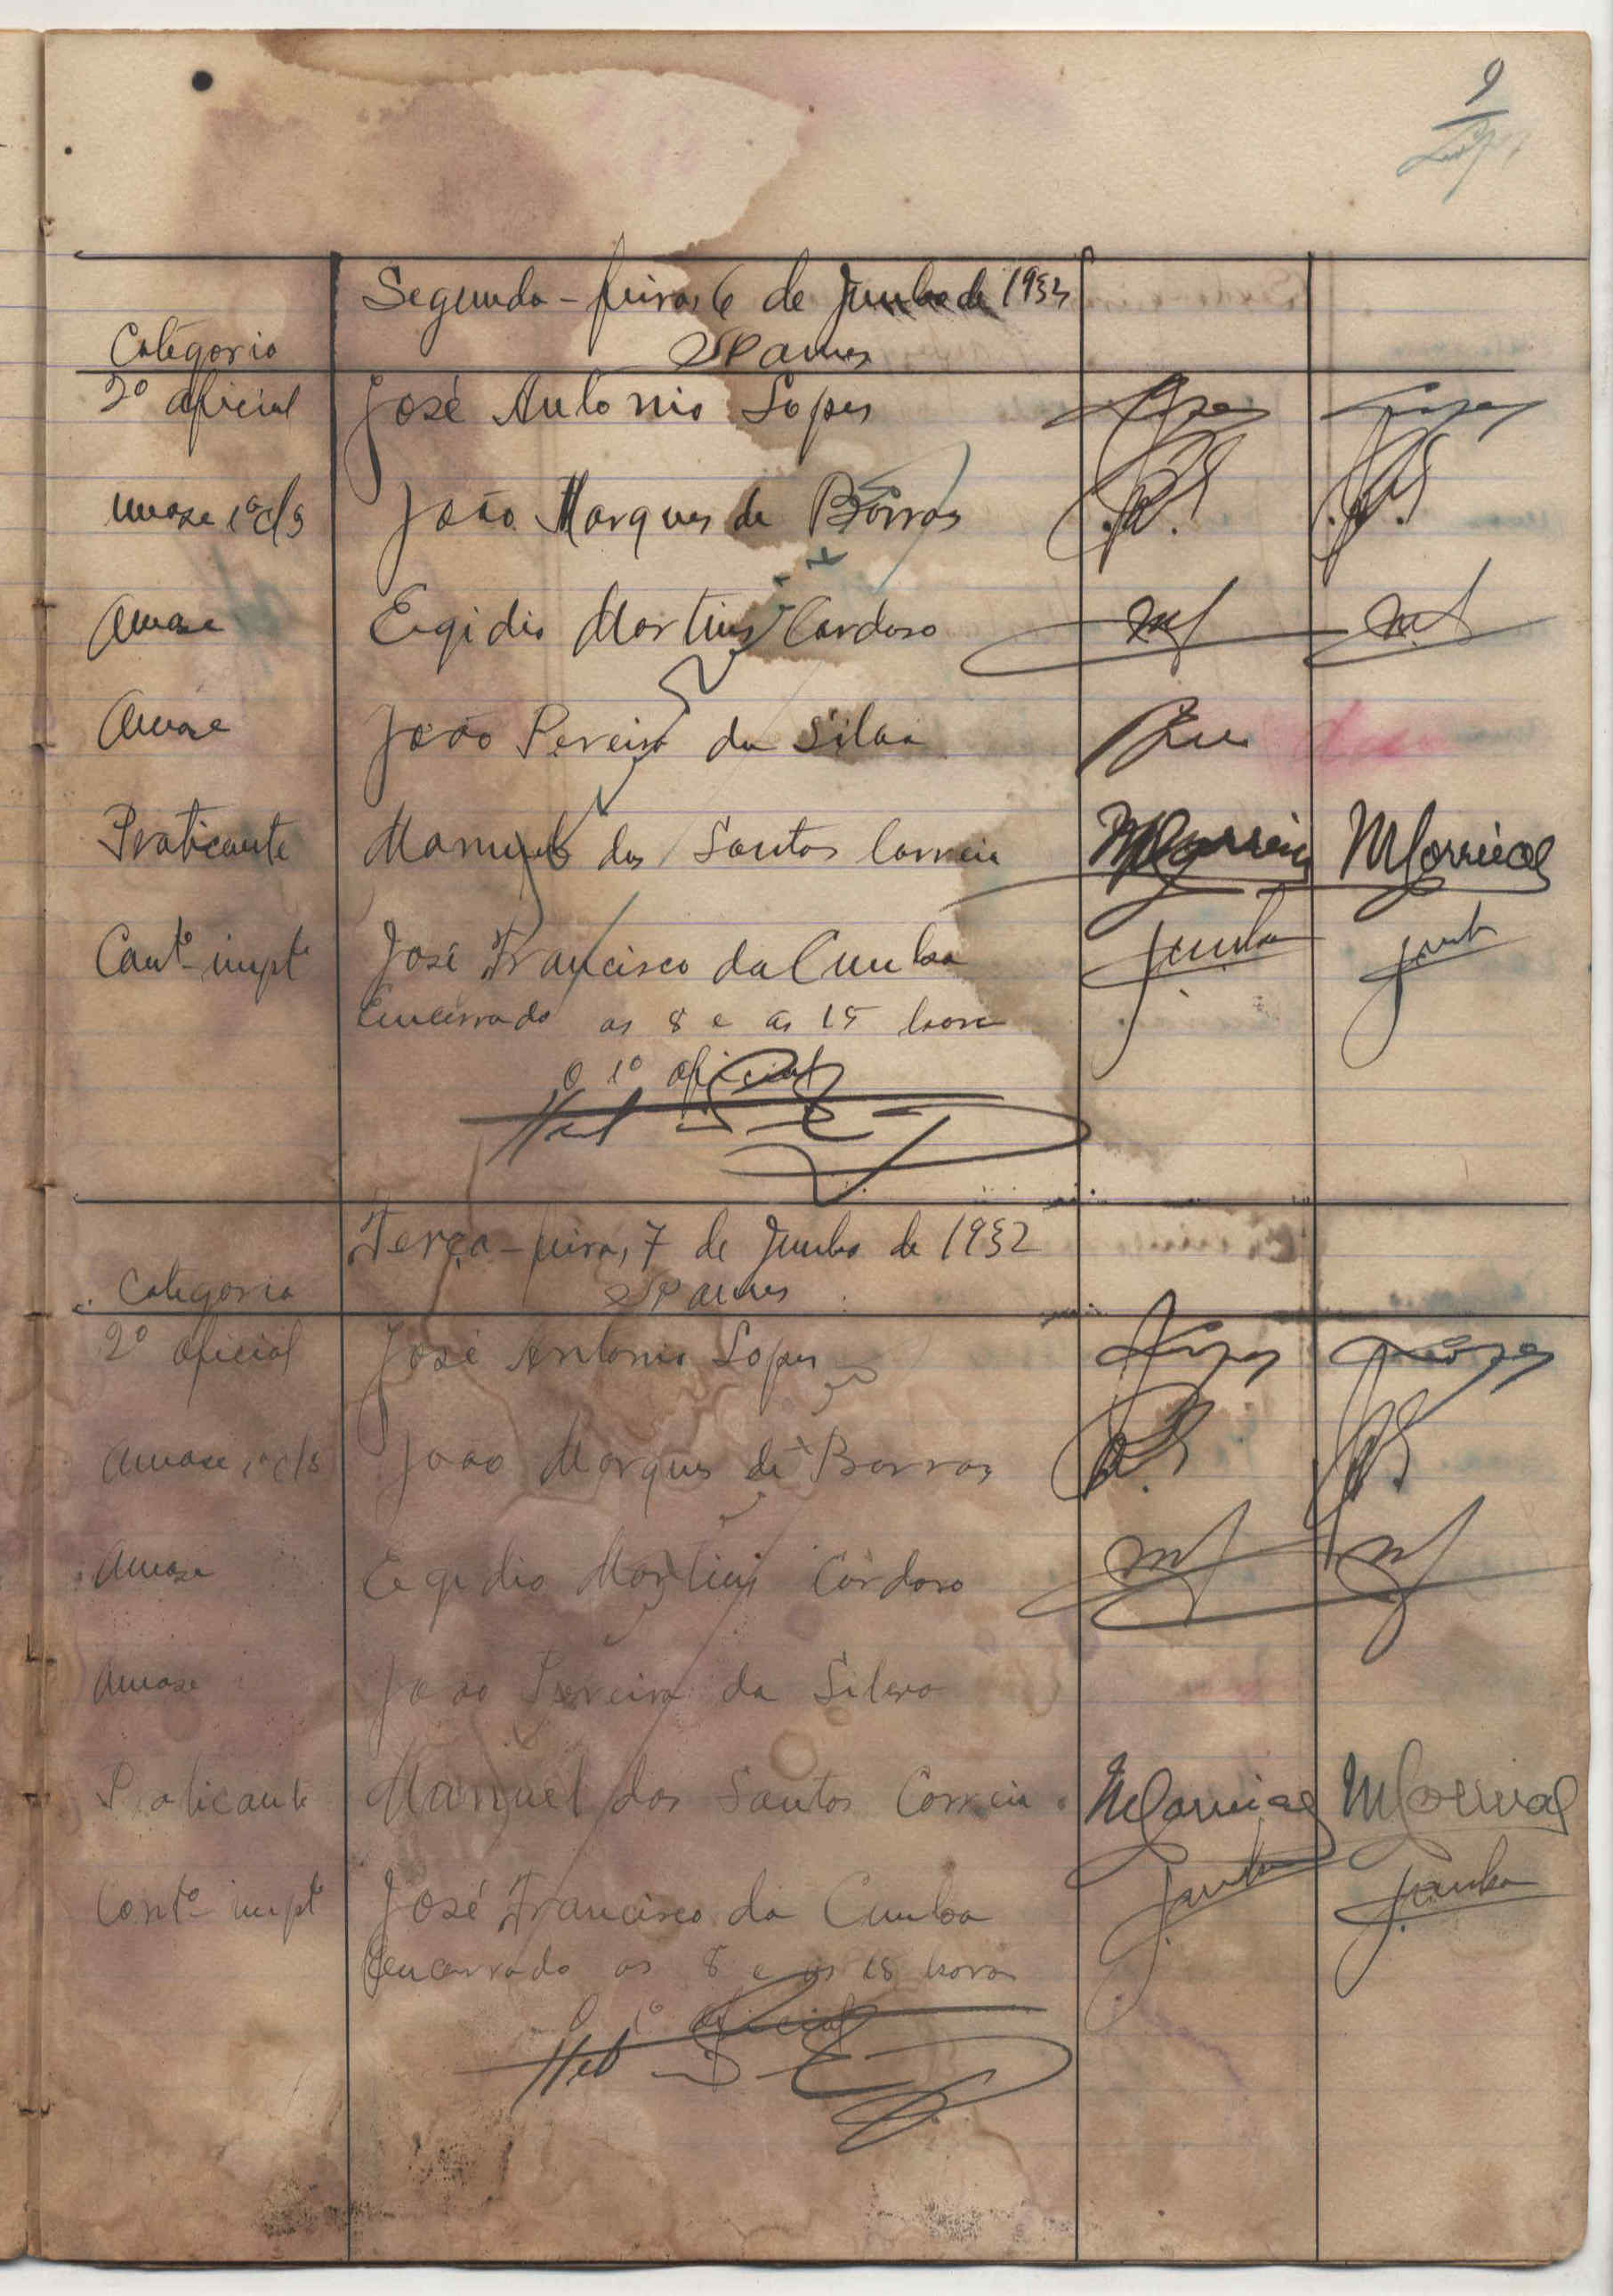 9
Segunda-feira, 6 de Junho de 1932
Categoria
2º oficial José Antonio Lopes Lopes Lopes
1ª cls João Marques de Barros
Egidio Martins Cardoso
João Pereira da Silva
Praticante Manuel dos Santos Correia MCorreia MCorreia
Contº impto José Francisco da Cunha JCunha JCunha
Encerrado as 8 e as 15 horas
O 1º oficial
Terça-feira, 7 de Junho de 1932
Categoria
2º oficial José Antonio Lopes Lopes Lopes
1ª cls João Marques de Barros
Egidio Martins Cardoso
João Pereira da Silva
Praticante Manuel dos Santos Correia MCorreia MCorreia
Contº impto José Francisco da Cunha JCunha JCunha
Encerrado as 8 e as 15 horas
O 1º oficial